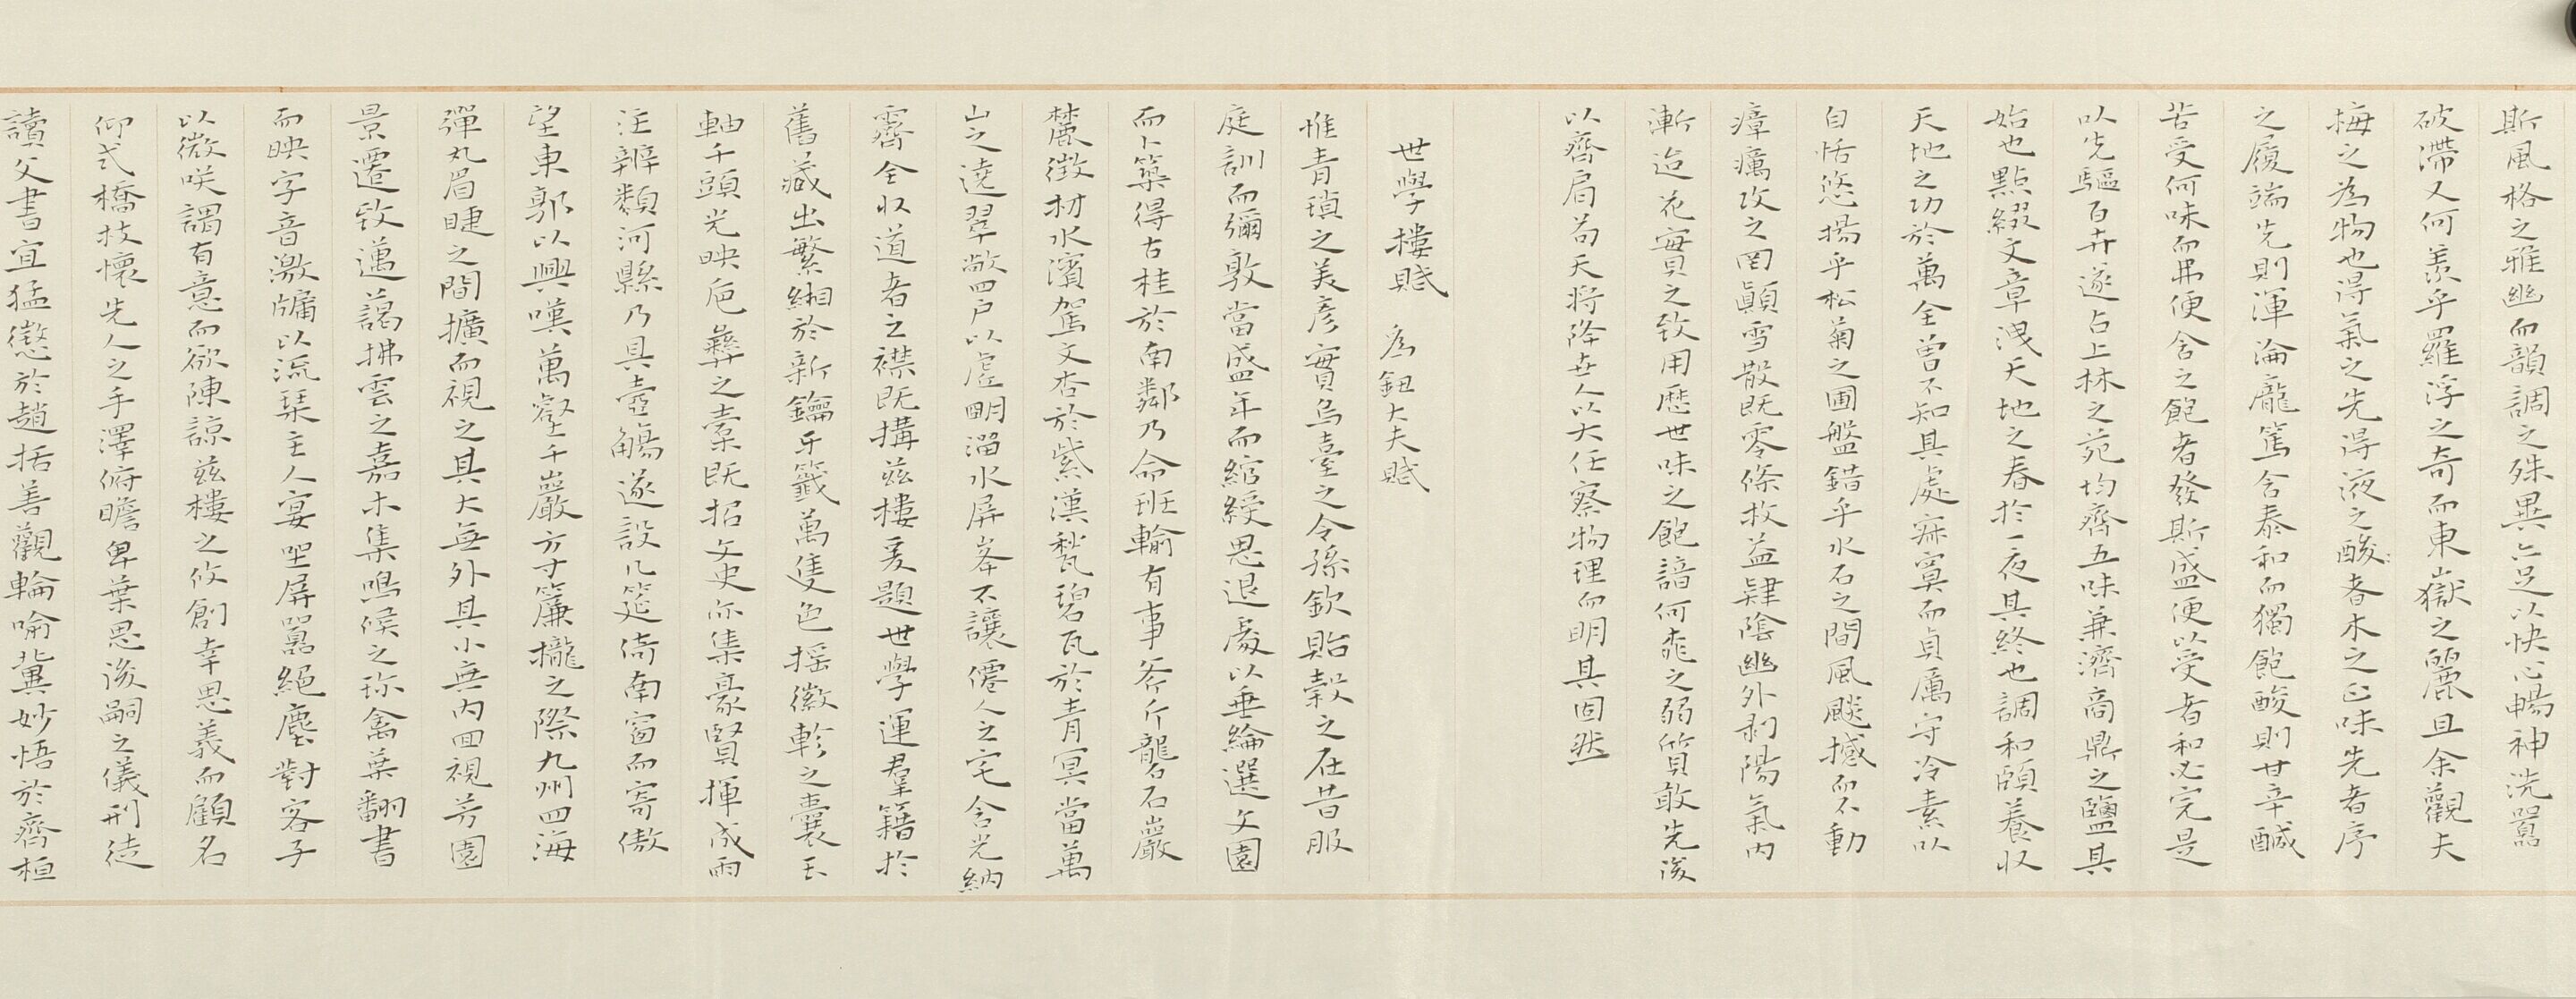 斯風格之雅幽而韻調之殊異亦足以快心暢神洗囂
破滯又何羨乎羅浮之奇而東嶽之麗且余觀夫
梅之為物也得氣之先得液之酸者木之正味先者序
之履端先則渾淪龐篤含泰和而獨飽酸則甘辛鹹
苦受何味而弗便含之飽者發斯盛便以受者和必完是
以先驅百卉遂占上林之苑均齊五味兼濟商鼎之鹽其
始也點綴文章洩天地之春於一夜其終也調和頤養収
天地之功於萬全曾不知其處寂寞而貞厲守冷素以
自恬悠揚乎松菊之圃盤錯乎水石之間風飈撼而不動
瘴癘攻之罔顛雪散既零條枚益肆陰幽外剥陽氣内
漸迨花實之致用歷世味之飽諳何乖之弱質敢先後
以齊肩苟天将降世人以大任察物理而明其固然
世學樓賦　為鈕大夫賦
惟青瑣之美彦實烏臺之令孫欽貽穀之在昔服
庭訓而彌敦當盛年而綰綬思退處以垂綸選文園
而卜築得古桂於南鄰乃命班輸有事斧斤礱石巖
麓徴材水濱駕文杏於紫漢甃碧瓦於青冥當萬
山之遶翠敞四戶以虚明溜水屏峯不讓僊人之宅含光納
霽全収道者之襟既搆兹樓爰題世學運羣籍於
舊藏出繁緗於新鑰牙籤萬隻色揺徽軫之囊玉
軸千頭光映巵彝之槖既招文史亦集豪賢揮成雨
注辨類河縣乃具壺觴遂設几筵倚南窗而寄傲
望東郭以興嘆萬壑千巖方寸簾櫳之際九州四海
彈丸眉睫之間擴而視之其大無外其小無内回視芳園
景遷致邁藹拂雲之嘉木集鳴候之珍禽葉翻書
而映字音激牖以流琹主人宴坐屏囂絕塵對客子
以微咲謂有意而欲陳諒兹樓之攸創幸思義而顧名
仰弌橋枝懷先人之手澤俯瞻卑葉思後嗣之儀刑徒
讀父書宜猛懲於趙括善觀輪喻冀妙悟於齊桓